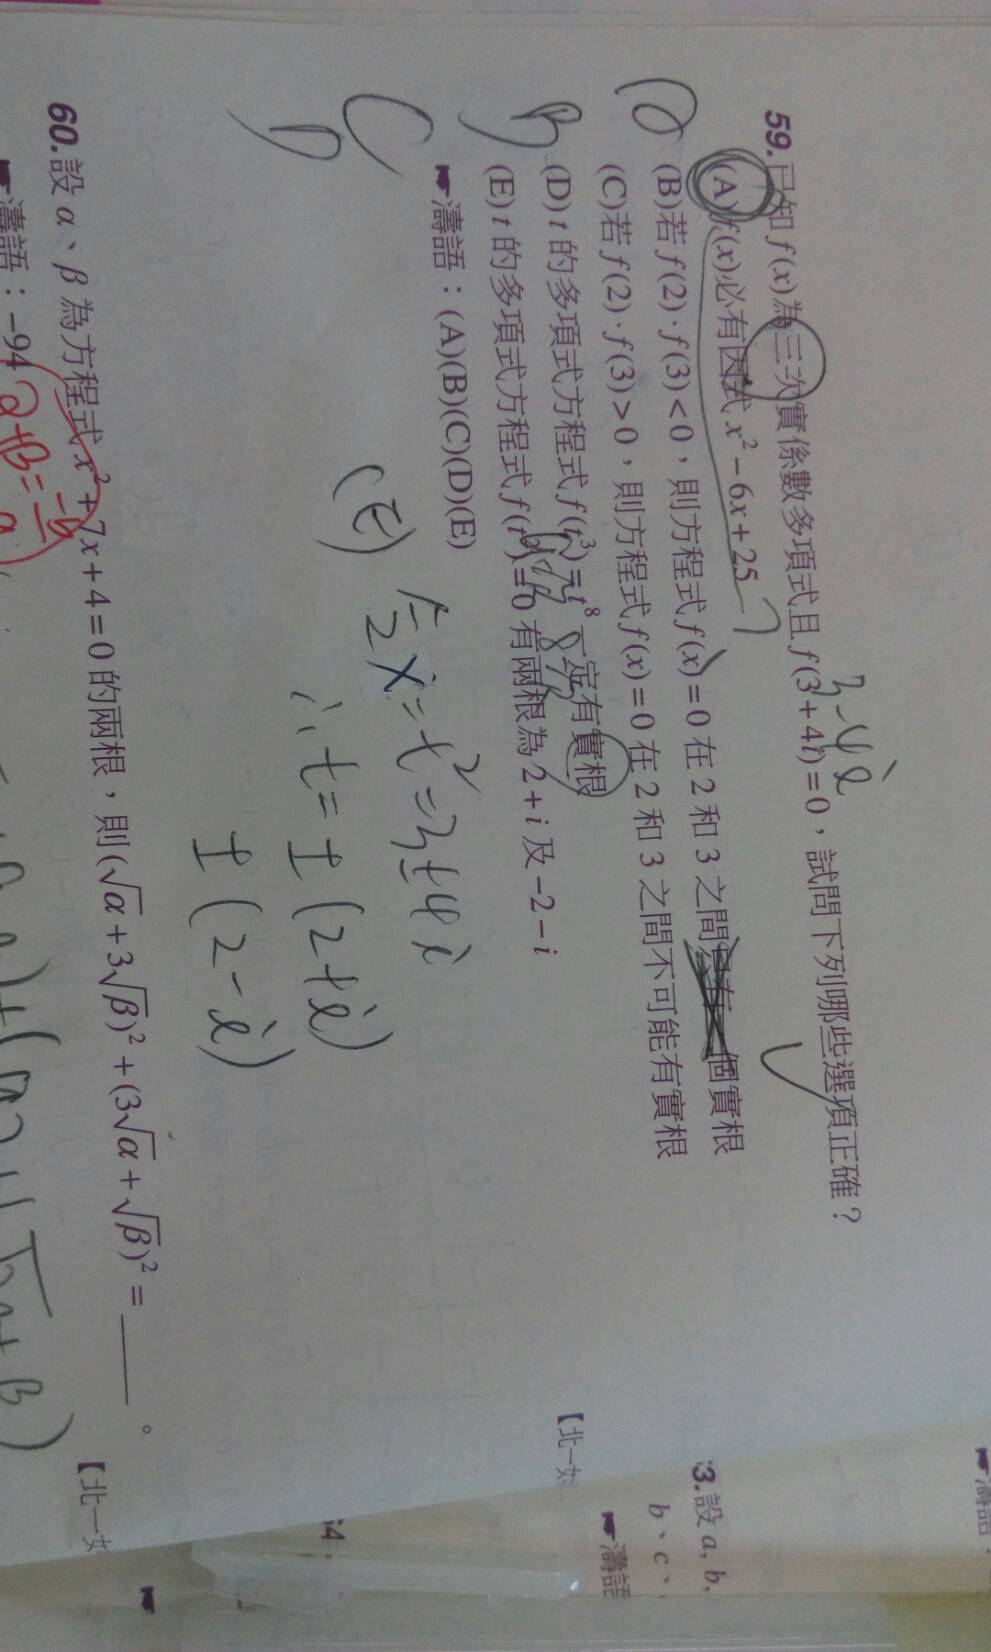 3-4i
59.已知 f(x)為三次實係數多項式且 f(3+4i)=0，試問下列哪些選項正確？
(A) f(x)必有因式 x²-6x+25
(B)若 f(2)·f(3)<0，則方程式 f(x)=0在2和3之間 個實根
(C)若 f(2)·f(3)>0，則方程式 f(x)=0在2和3之間不可能有實根
(D) t 的多項式方程式 f(t³)=t⁸一定有實根
(E) t 的多項式方程式 f(t²)=0有兩根為2+i及-2-i
☛濤語：(A)(B)(C)(D)(E)
(E) 令x=t²=3±4i
∴t=±(2+i)
±(2-i)
【北一女
60.設 α、β 為方程式 x²+7x+4=0的兩根，則(√α+3√β)²+(3√α+√β)²=______。
【北一女
☛濤語：-94
α+β=-b/a
☛濤語
3.設 a, b,
b、c、
☛濤語
64